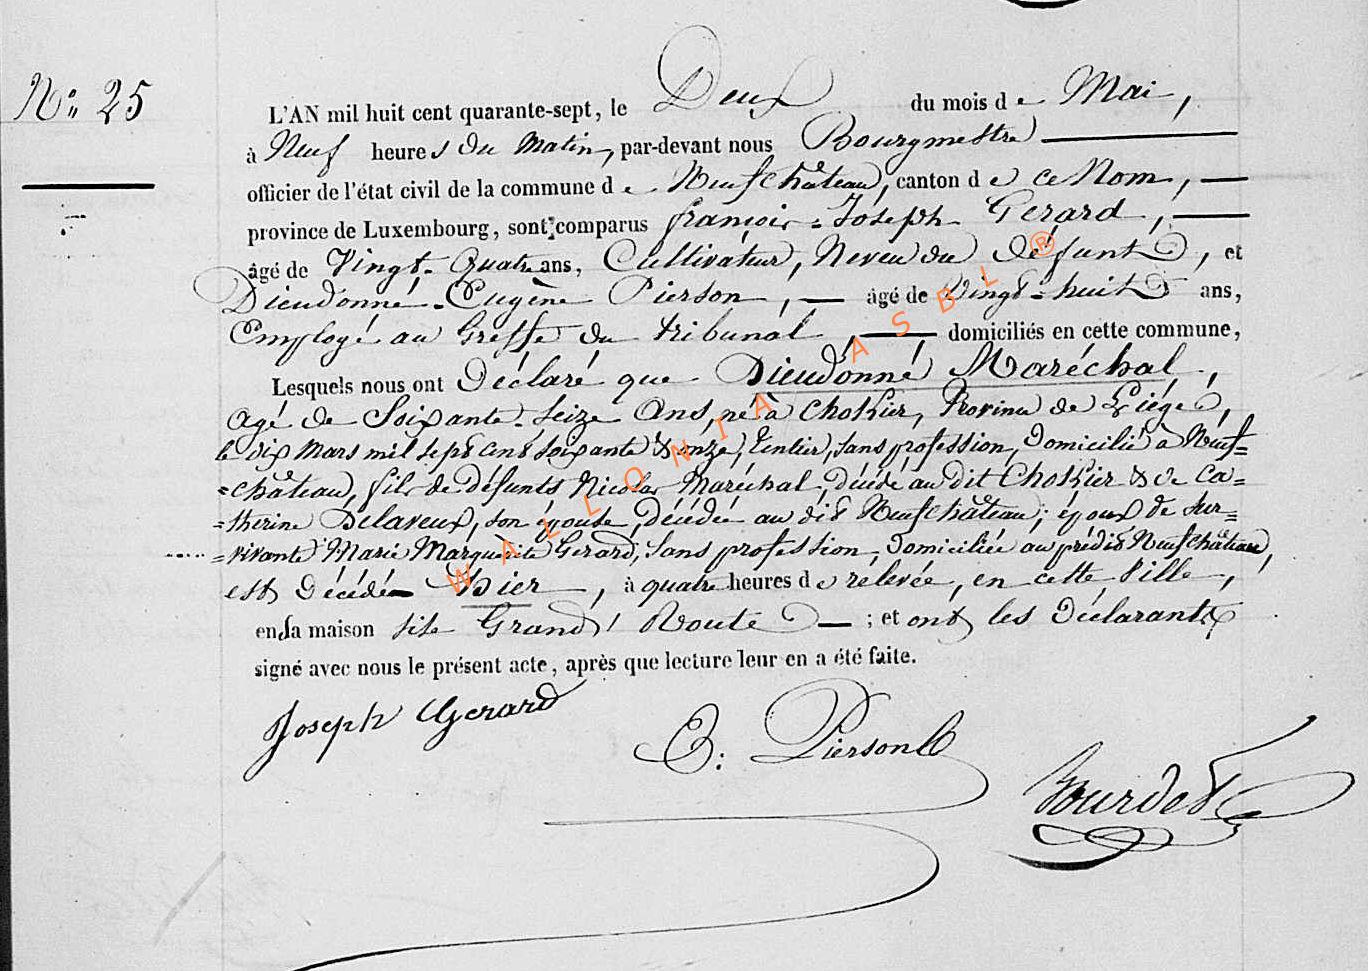 N° 25
L'AN mil huit cent quarante-sept, le Deux du mois de Mai,
à Neuf heures du Matin, par-devant nous Bourgmestre
officier de l'état civil de la commune de Neufchâteau, canton de ce Nom,
province de Luxembourg, sont comparus françois-Joseph Gérard,
âgé de Vingt-Quatre ans, Cultivateur, Neveu du défunt, et
Dieudonné-Eugène Pierson, âgé de Vingt-huit ans,
Employé au Greffe du tribunal, domiciliés en cette commune,
Lesquels nous ont Déclaré que Dieudonné Maréchal,
agé de Soixante-seize Ans, né à Chokier, Province de Liége,
le dix Mars mil sept cent soixante & onze, rentier, sans profession, Domicilié à Neuf=
=château, fils de défunts Nicolas Maréchal, décédé au dit Chokier & de Ca=
=therine Delaveux, son épouse, décédée au dit Neufchâteau; époux de sur=
=vivante Marie Marguerite Gerard, sans profession, Domiciliée au prédit Neufchâteau,
est Décédé hier, à quatre heures de rélevée, en cette Ville,
en sa maison site Grand'Route ; et ont les Déclarants
signé avec nous le présent acte, après que lecture leur en a été faite.
Joseph Gerard
E: Pierson
Bourdet
WALLONIA ASBL ®